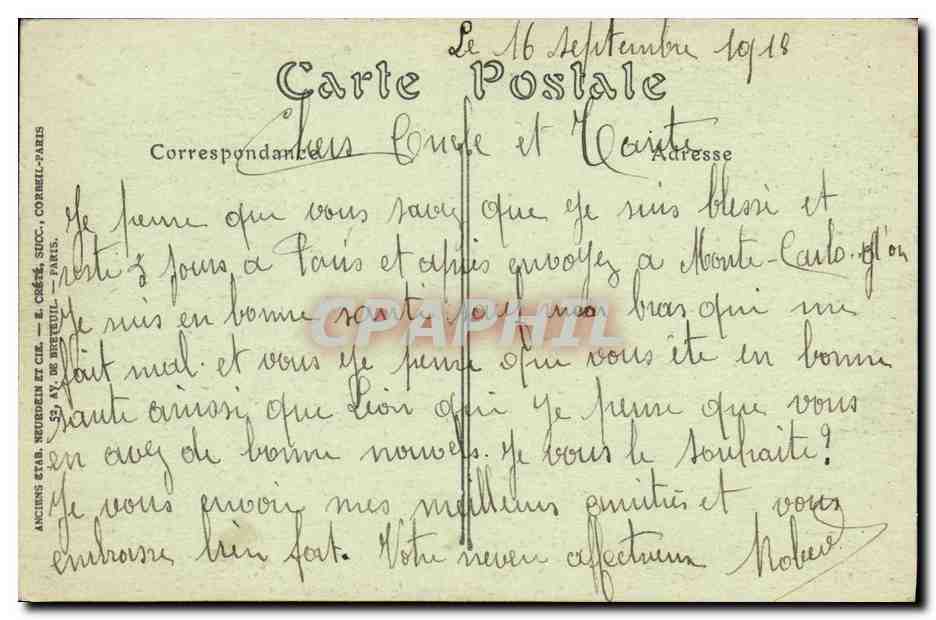 Le 16 septembre 1918
Carte Postale
Chers Oncle et Tante
Correspondance
Adresse
Je pense que vous savez que je suis blessé et
resté 3 jours a Paris et apies envoyez a Monte-Carlo. l'on
Je suis en bonne santé mon bras qui me
fait mal. et vous je pense que vous ete en bonne
sante ainssi que Léon qui je pense que vous
en avez de bonne nouvels. Je vous le souhaite!
Je vous envoir mes meilleurs amitiés et vous
embrasse bien fort. Votre neveu affectueux Robert
ANCIENS ETAB. NEURDEIN ET CIE. — E. CRÉTÉ, SUCC., CORBEIL-PARIS
52, AV. DE BRETEUIL. — PARIS.
CPAPHIL